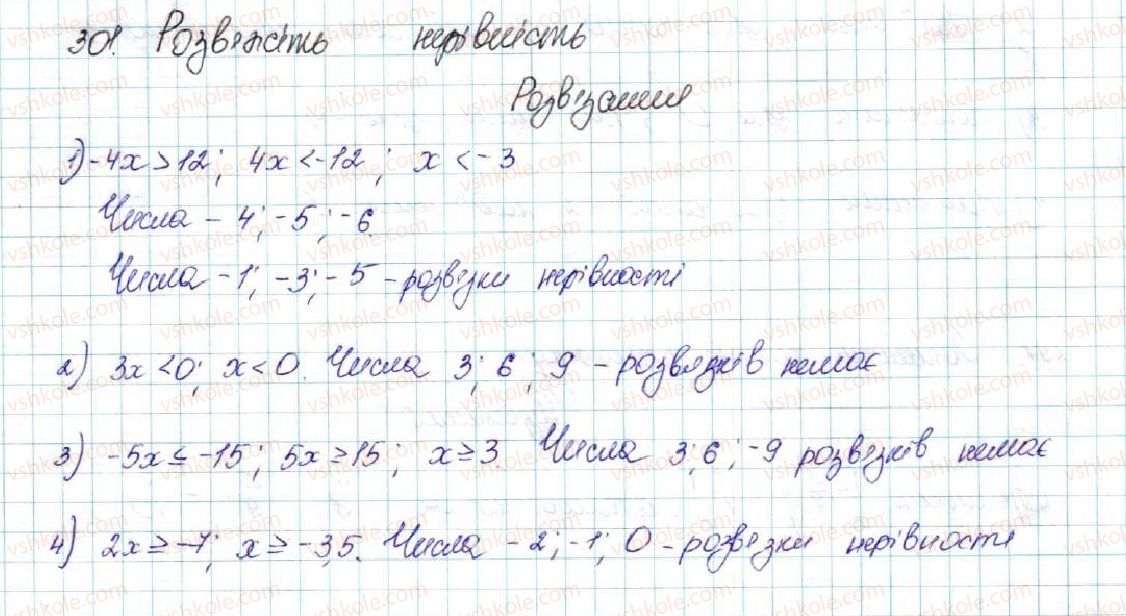 301. Розвяжіть нерівність
Розвізання
1) -4x > 12; 4x < -12; x < -3
Числа -4; -5; -6.
Числа -1; -3; -5 - розвєзки нерівності
2) 3x < 0; x < 0. Числа 3; 6; 9 - розвязків немає
3) -5x ≤ -15; 5x ≥ 15; x ≥ 3. Числа 3; 6; -9 розвєзків немає
4) 2x ≥ -7; x ≥ -3,5. Числа -2; -1; 0 - розвєзки нерівності